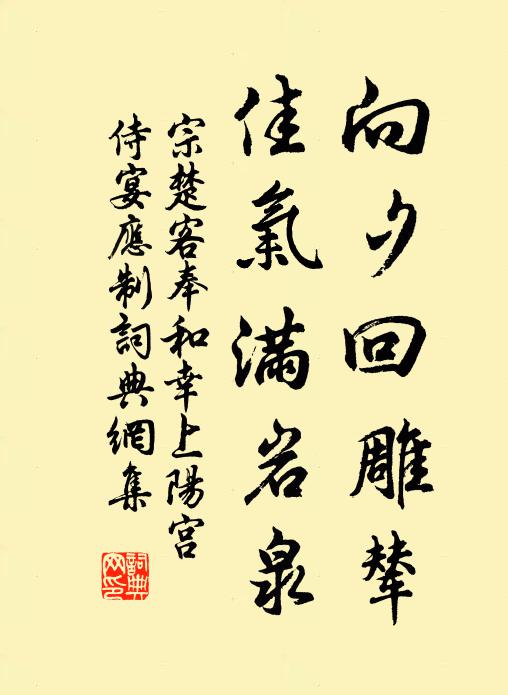 向夕回雕輦
佳氣滿岩泉
宗楚客奉和幸上陽宮
侍宴應制詞典網集
詞典
网印